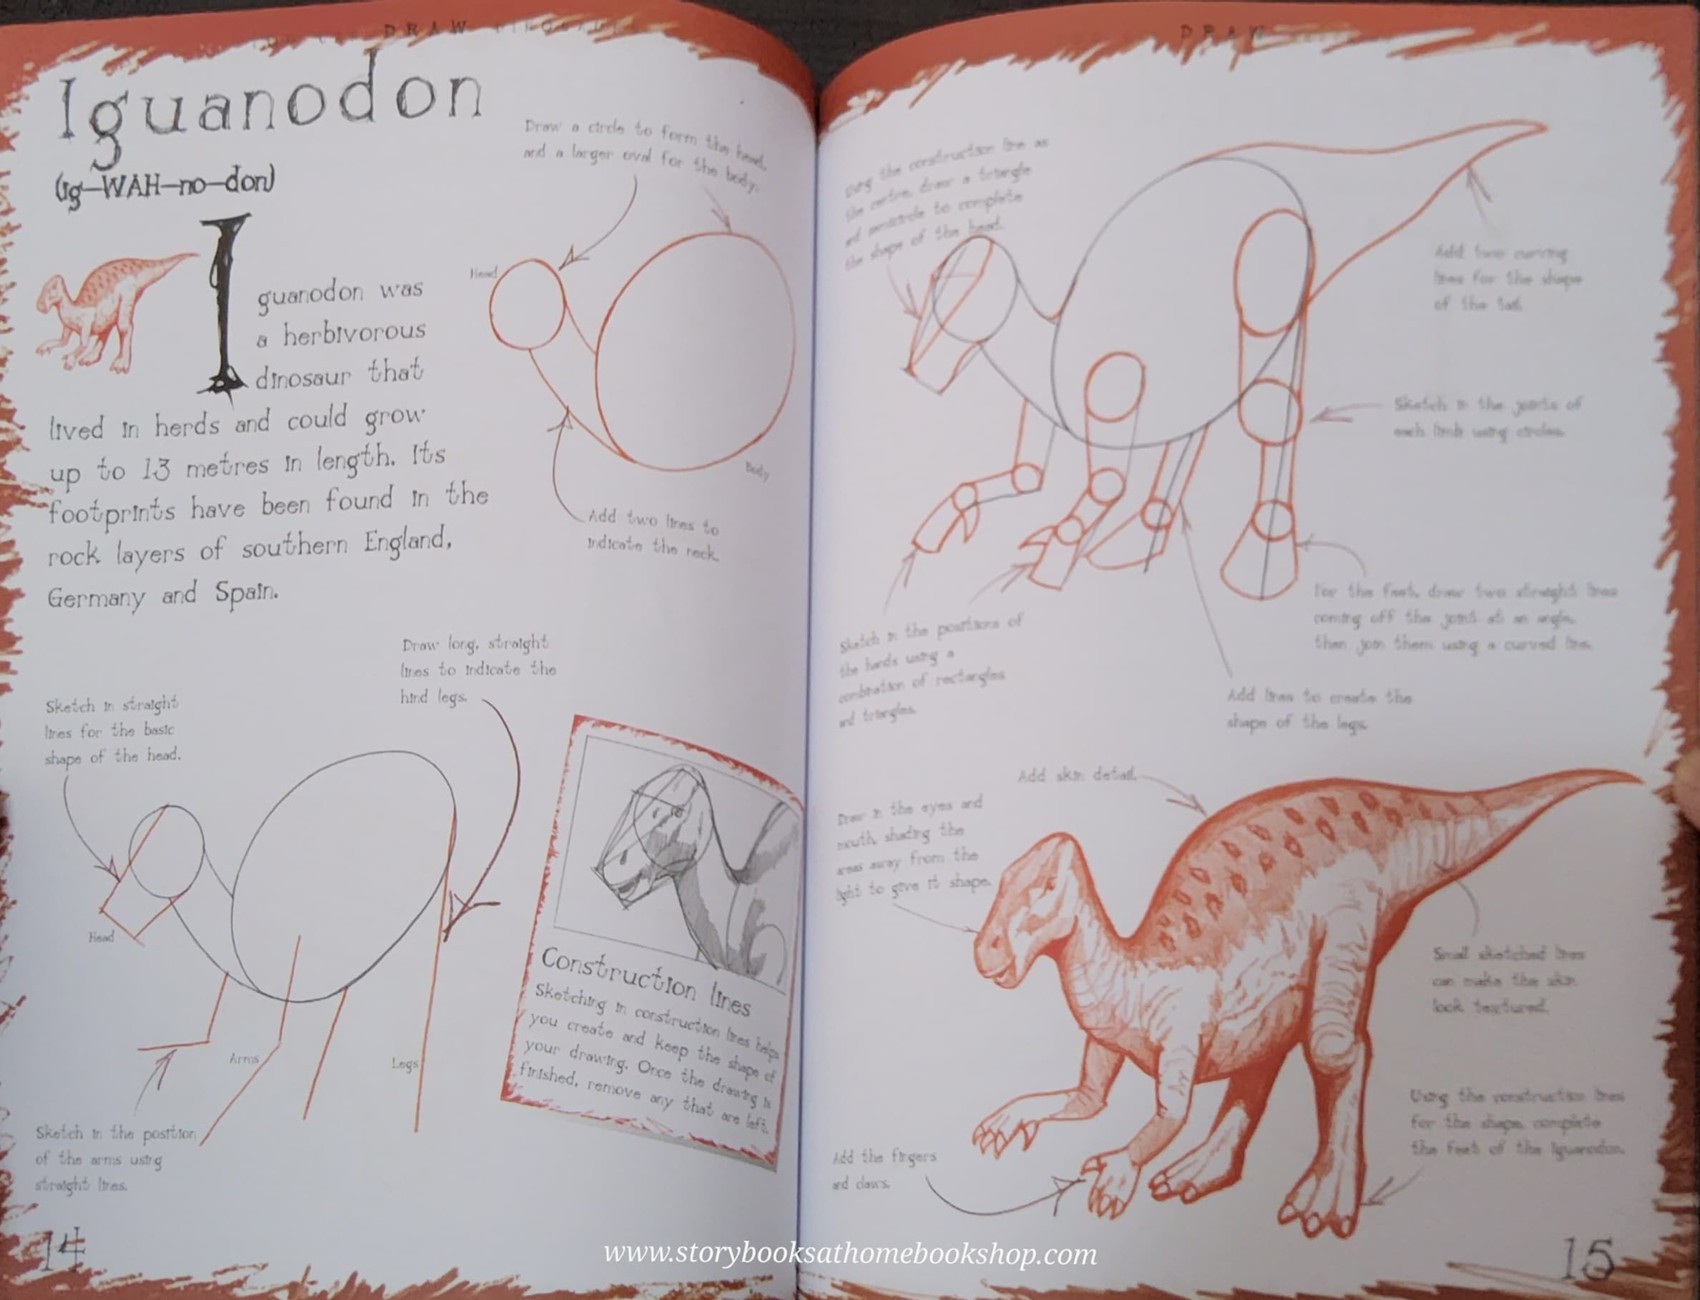 DRAW DINOSAURS
Iguanodon
(ig–WAH–no–don)
Iguanodon was
a herbivorous
dinosaur that
lived in herds and could grow
up to 13 metres in length. Its
footprints have been found in the
rock layers of southern England,
Germany and Spain.
Draw a circle to form the head,
and a larger oval for the body.
Head
Body
Add two lines to
indicate the neck.
Draw long, straight
lines to indicate the
hind legs.
Sketch in straight
lines for the basic
shape of the head.
Head
Arms
Legs
Sketch in the position
of the arms using
straight lines.
Construction lines
Sketching in construction lines helps
you create and keep the shape of
your drawing. Once the drawing is
finished, remove any that are left.
14
DRAW
Using the construction line as
the centre, draw a triangle
and semicircle to complete
the shape of the head.
Add two curving
lines for the shape
of the tail.
Sketch in the joints of
each limb using circles.
For the feet, draw two straight lines
coming off the joint at an angle,
then join them using a curved line.
Sketch in the positions of
the hands using a
combination of rectangles
and triangles.
Add lines to create the
shape of the legs.
Add skin detail.
Draw in the eyes and
mouth, shading the
areas away from the
light to give it shape.
Small sketched lines
can make the skin
look textured.
Using the construction lines
for the shape, complete
the feet of the Iguanodon.
Add the fingers
and claws.
15
www.storybooksathomebookshop.com